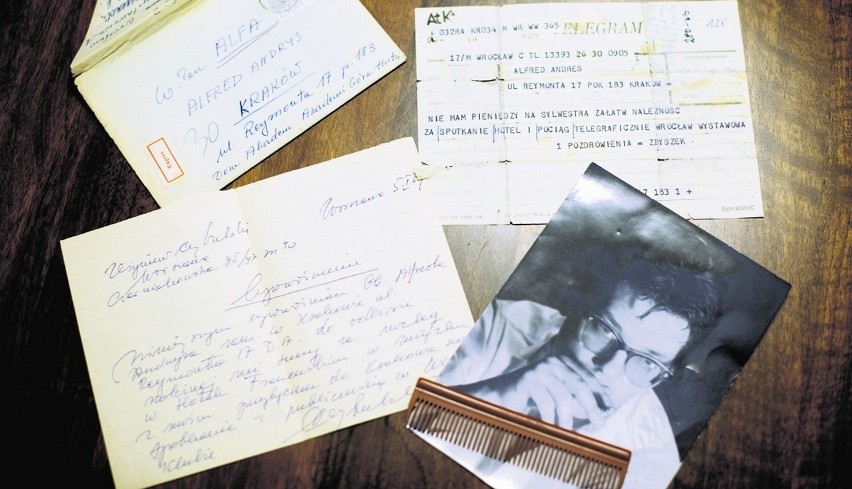 W Pan ALFA
ALFRED ANDRYS
30 KRAKÓW
ul Reymonta 17 p. 183
Dom Akadem. Akademii Górn-Hutn
TELEGRAM
032RA KR034 M WR WW 365
17/M WROCŁAW C TL 13393 26 30 0905 =
ALFRED ANDRES
UL REYMONTA 17 POK 183 KRAKÓW =
NIE MAM PIENIĘDZY NA SYLWESTRA ZAŁATW NALEŻNOŚĆ
ZA SPOTKANIE HOTEL I POCIĄG TELEGRAFICZNIE WROCŁAW WYSTAWOWA
1 POZDROWIENIA = ZBYSZEK
17 183 1 +
Warszawa 5 I
Zbigniew Cybulski
Warszawa
Czerniakowska m 40
Upoważnienie
Niniejszym upoważniam Ob. Alfreda
Andrysa zam w Krakowie ul
Reymonta 17 D.A. do odbioru
należnej mi sumy za nocleg
w Hotelu Francuskim w związku
z moim przybyciem do Krakowa na
spotkanie z publicznością w
Klubie
Cybulski